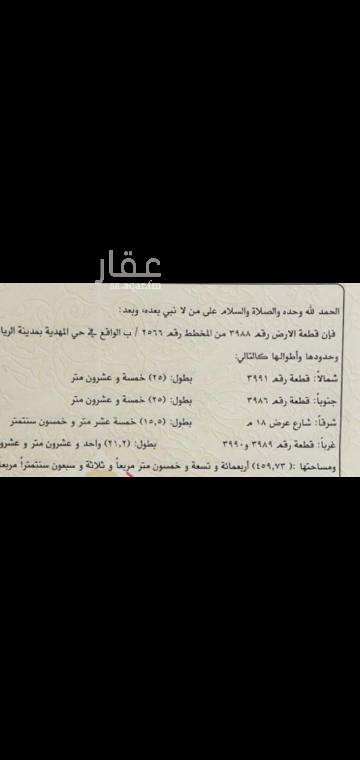 عقار
sa.aqar.fm
الحمد لله وحده والصلاة والسلام على من لا نبي بعده، وبعد:
فإن قطعة الارض رقم ٣٩٨٨ من المخطط رقم ٢٥٦٦ / ب الواقع في حي المهدية بمدينة الريا
وحدودها وأطوالها كالتالي:
شمالاً: قطعة رقم ٣٩٩١ بطول: (٢٥) خمسة و عشرون متر
جنوباً: قطعة رقم ٣٩٨٦ بطول: (٢٥) خمسة و عشرون متر
شرقاً: شارع عرض ١٨ م بطول: (١٥,٥) خمسة عشر متر و خمسون سنتمتر
غرباً: قطعة رقم ٣٩٨٩ و ٣٩٩٠ بطول: (٢١,٢) واحد و عشرون متر و عشرو
ومساحتها :( ٤٥٩,٧٣) أربعمائة و تسعة و خمسون متر مربعاً و ثلاثة و سبعون سنتمتراً مربعا